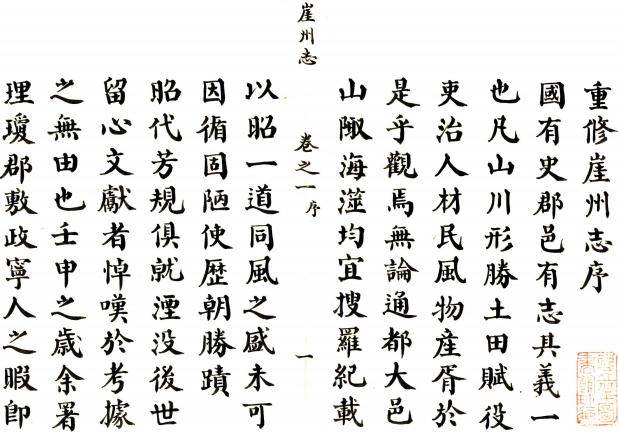 重修崖州志序
國有史郡邑有志其義一
也凡山川形勝土田賦役
吏治人材民風物產胥於
是乎觀焉無論通都大邑
山陬海澨均宜搜羅紀載
崖州志
卷之一 序
一
以昭一道同風之盛未可
因循固陋使歷朝勝蹟
昭代芳規俱就湮没後世
留心文獻者悼嘆於考據
之無由也壬申之歲余署
理瓊郡敷政寧人之暇即